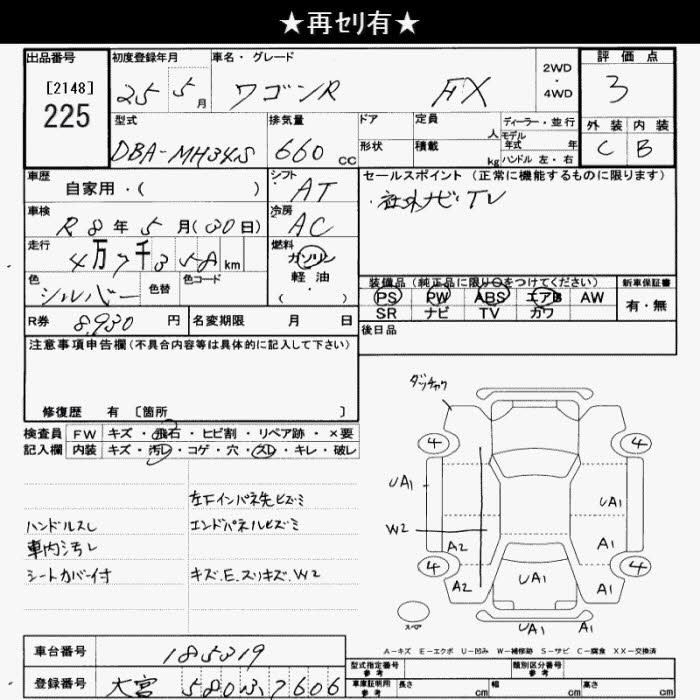 ★再ｾﾘ有★
出品番号
[2148]
225
初度登録年月
25 5 月
車名・グレード
ワゴンR FX
2WD
・
4WD
評価点
3
外装 内装
C B
型式
DBA-MH34S
排気量
660 cc
ドア
形状
定員
人
積載
kg
ディーラー・並行
モデル
年式 年
ハンドル 左・右
車歴
自家用・( )
シフト
AT
車検
R8年5月(30日)
冷房
AC
走行
4万7千3 58 km
燃料
ガソリン
軽油
( ・ )
色
シルバー
色替
色コード
R券 8,930 円
名変期限 月 日
セールスポイント(正常に機能するものに限ります)
・社外ナビ・TV
装備品(純正品に限り○をつけてください)
PS PW ABS エアB AW
SR ナビ TV カワ
新車保証書
有・無
後日品
注意事項申告欄(不具合内容等は具体的に記入して下さい)
修復歴 有 [箇所 ]
検査員 FW キズ・飛石・ヒビ割・リペア跡・×要
記入欄 内装 キズ・汚レ・コゲ・穴・スレ・キレ・破レ
左Fインパネ先ヒズミ
ハンドルスレ
エンドパネルヒズミ
車内汚レ
シートカバー付
キズ.E.スリキズ.W2
ダッチャク
4 4
UA1
UA1
W2
A2 A1
4 4
A2 UA1 A1
スペア
UA1 A1
A-キズ E-エクボ U-凹み W-補修跡 S-サビ C-腐食 XX-交換済
車台番号 185319
登録番号 大宮 580 ﾑ 7606
型式指定番号
参考
類別区分番号
参考
車庫証明用
参考
長さ cm 幅 cm 高さ cm